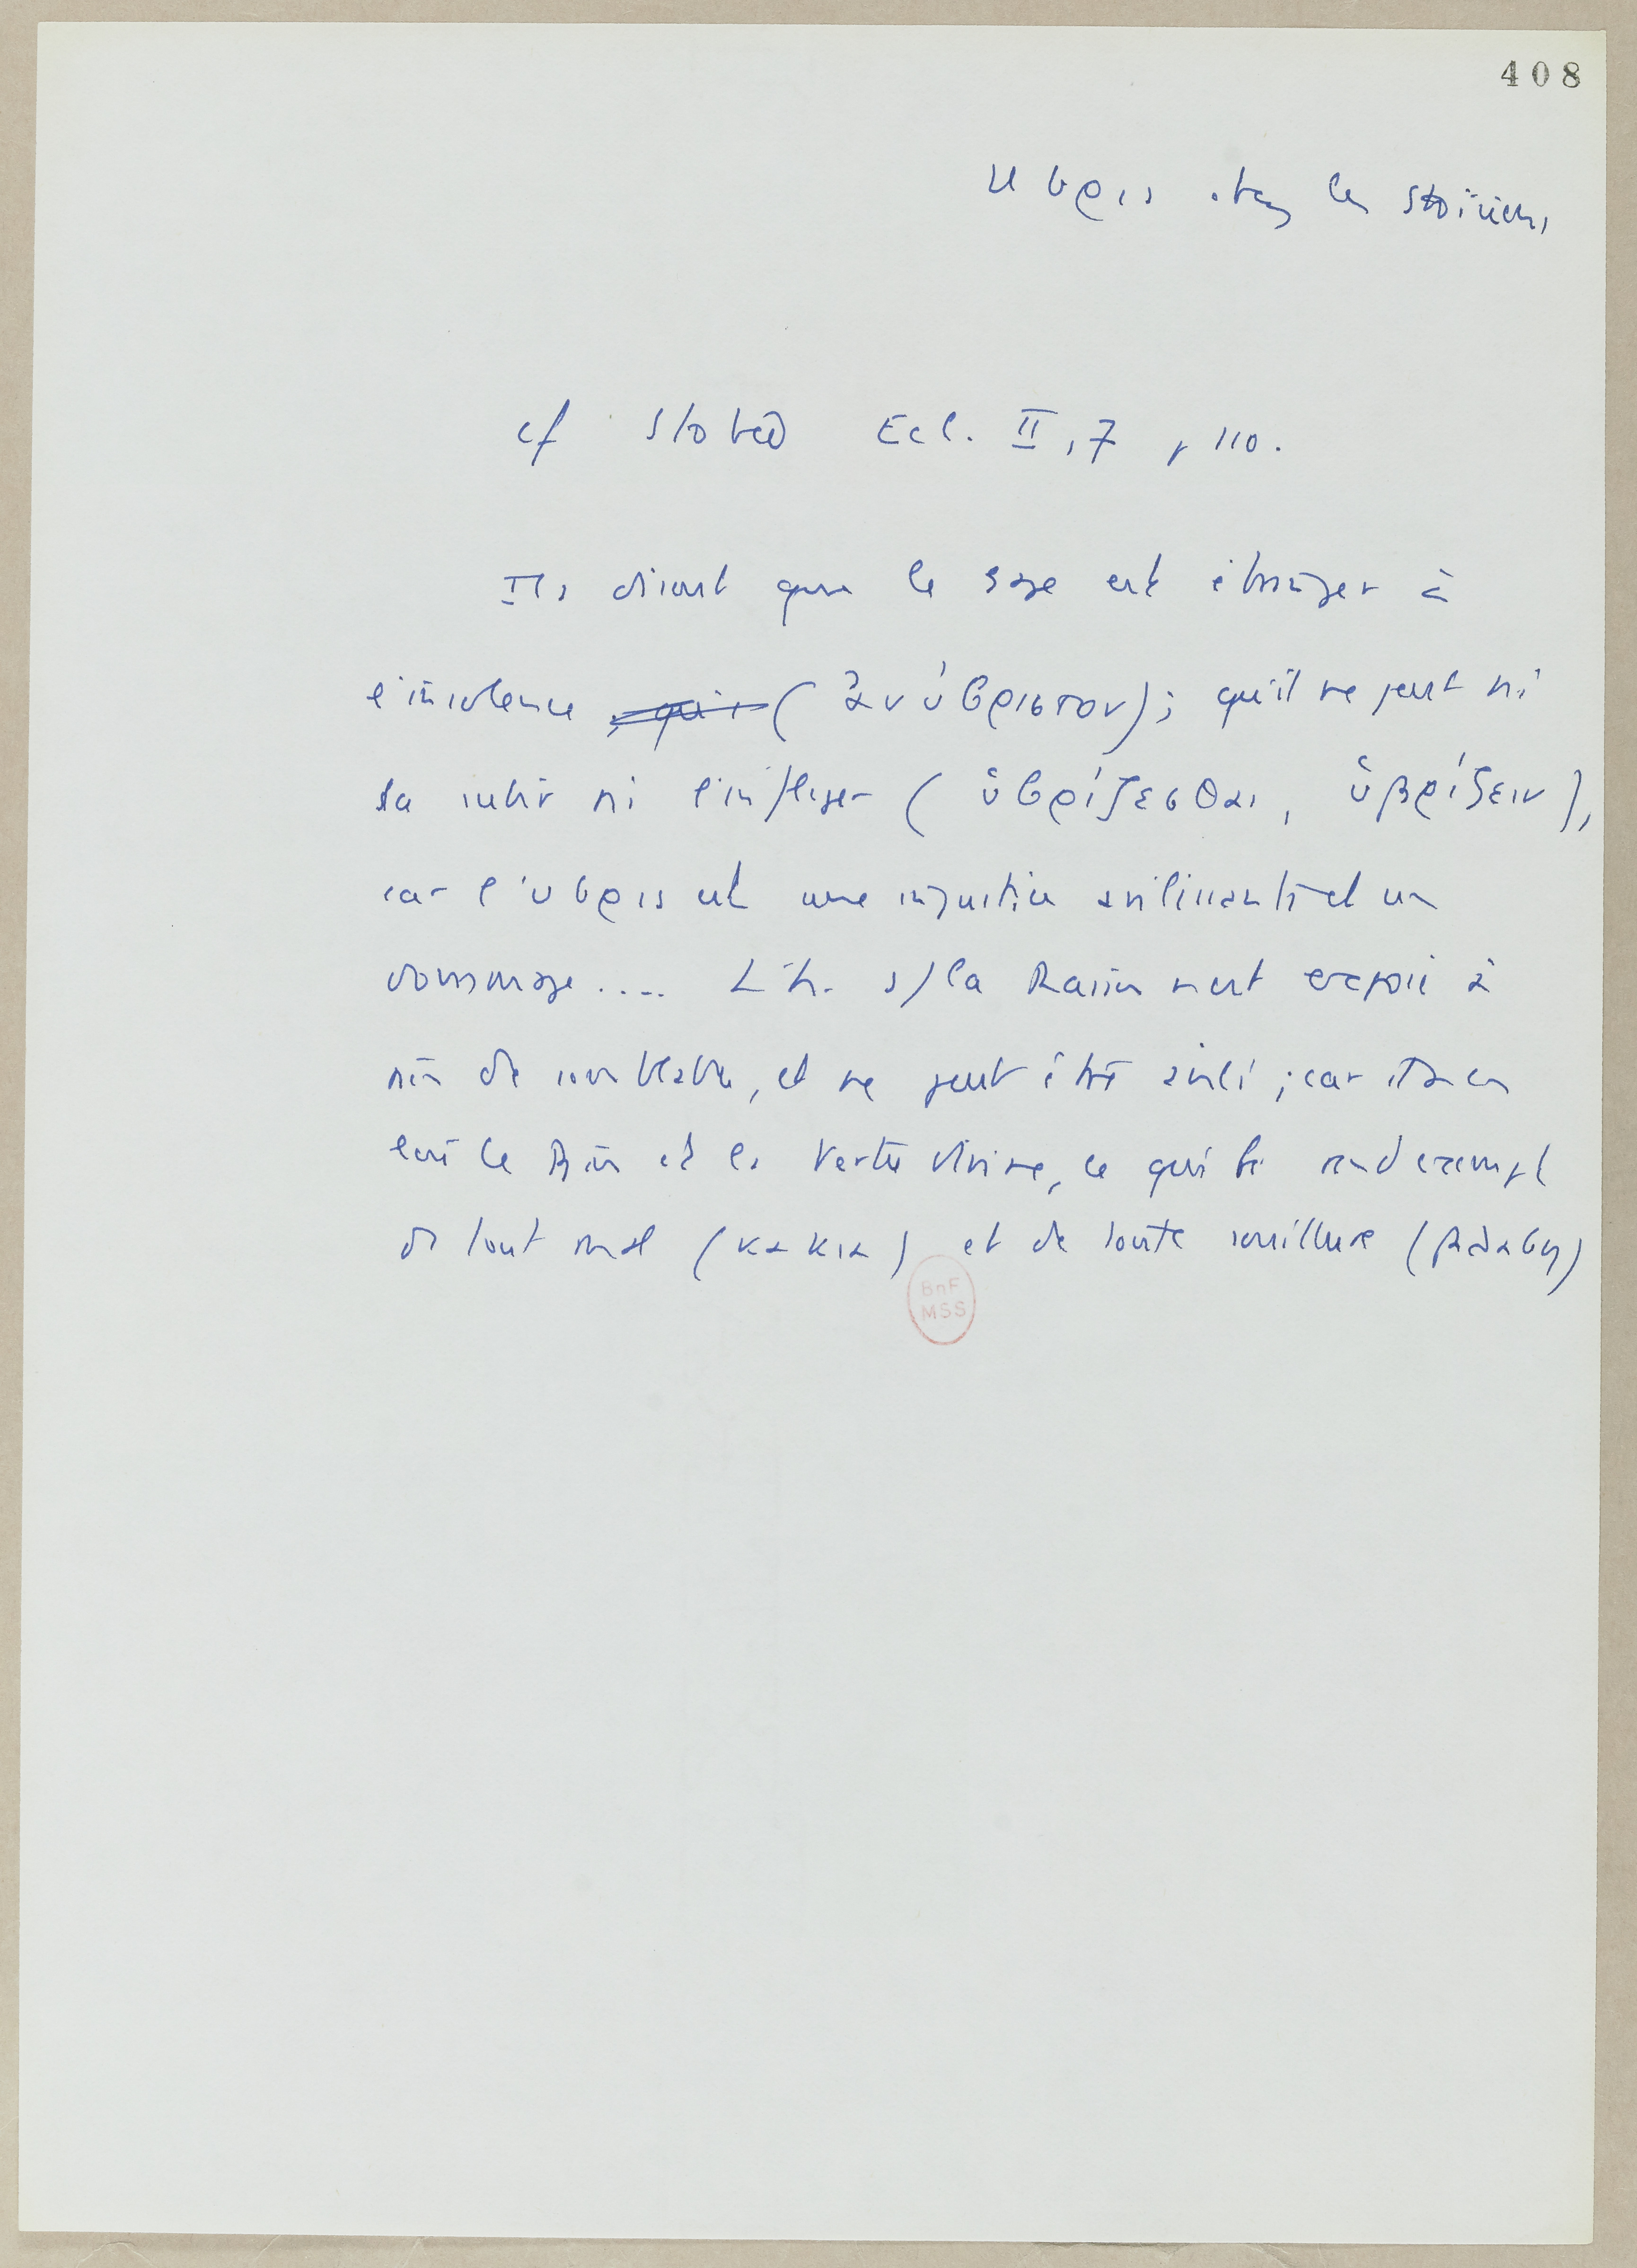 408
Ubris chez les stoïciens
cf Stobée Ecl. II, 7 p 110.
Ils disent que le sage est étranger à
l'insolence , qui (ἀνύβριστον); qu'il ne peut ni
la subir ni l'infliger (ὑβρίζεσθαι, ὑβρίζειν),
car l'υβρις est une injustice avilissante et un
dommage.... L'h. s/ la Raison n'est exposé à
rien de semblable, et ne peut être avili ; car il a en
lui le Bien et la Vertu divine, ce qui le rend exempt
de tout mal (κακια) et de toute souillure (βλαβη)
BnF
MSS